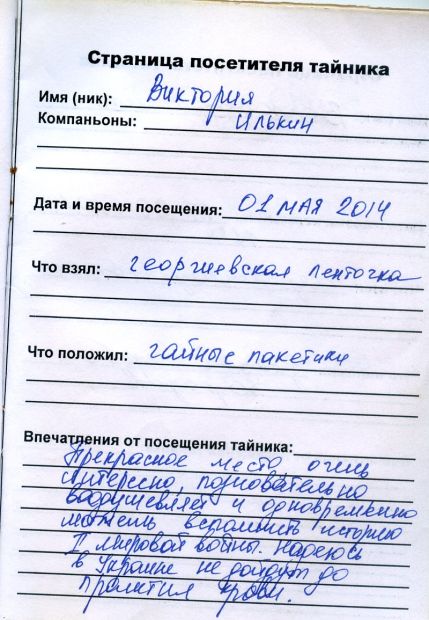 Страница посетителя тайника
Имя (ник): Виктория
Компаньоны: Илькин
Дата и время посещения: 01 мая 2014
Что взял: георгиевская ленточка
Что положил: чайные пакетики
Впечатления от посещения тайника:
Прекрасное место, очень
интересно, познавательно
воодушевляет и одновременно
можешь вспомнить историю
II мировой войны. Надеюсь
в Украине не дойдут до
пролития крови.